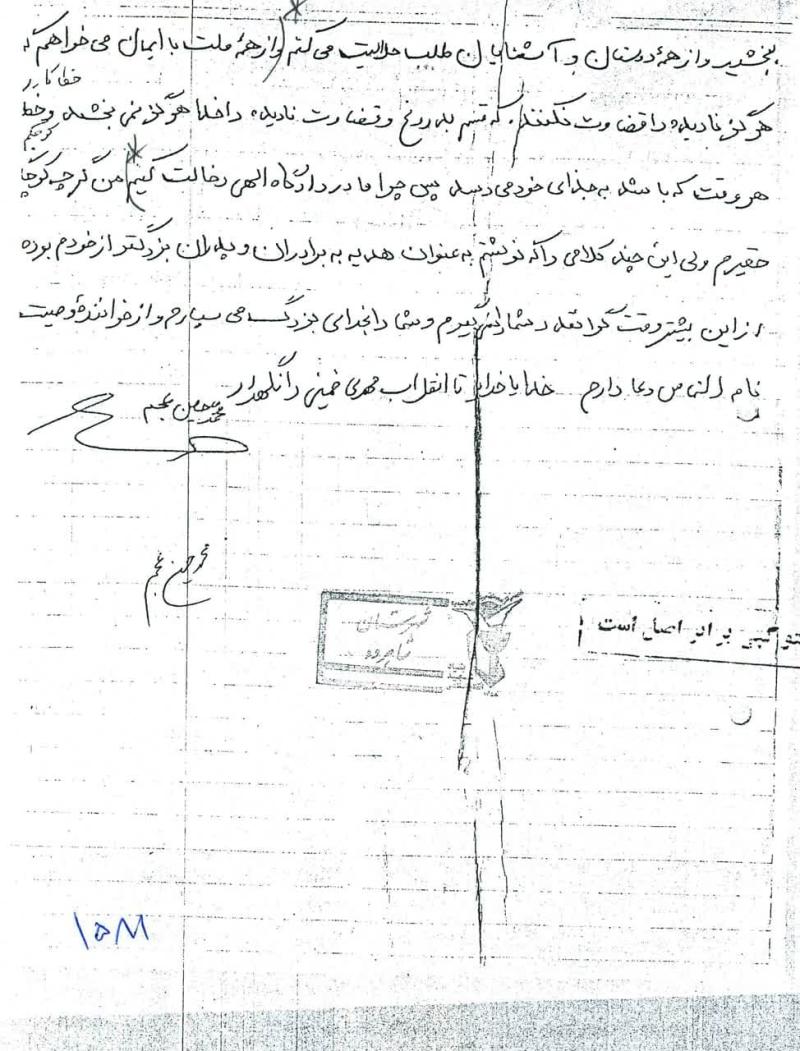 ببخشید و از همهٔ دوستان و آشنایان طلب حلالیت می کنم و از همهٔ ملت با ایمان می خواهم که
هرگز نادیده را قضاوت نکنند که قسم به دروغ و قضاوت نادیده را خدا هرگز نمی بخشد و خطا
خطا کار را
هر وقت که باشد به جزای خود می رسد پس چرا ما در دادگاه الهی دخالت کنیم من گر چه کوچکم
حقیرم ولی این چند کلامی را که نوشتم به عنوان هدیه به برادران و پدران بزرگتر از خودم بوده
از این بیشتر وقت گرانقدر شما را نمی گیرم و شما را بخدای بزرگ می سپارم و از خوانندهٔ وصیت
نام التماس دعا دارم خدایا خدایا تا انقلاب مهدی خمینی را نگهدار
محمد حسین عجم
محمد حسین عجم
شهرستان
شاهرود
کپی برابر اصل است
۱۵۸۱